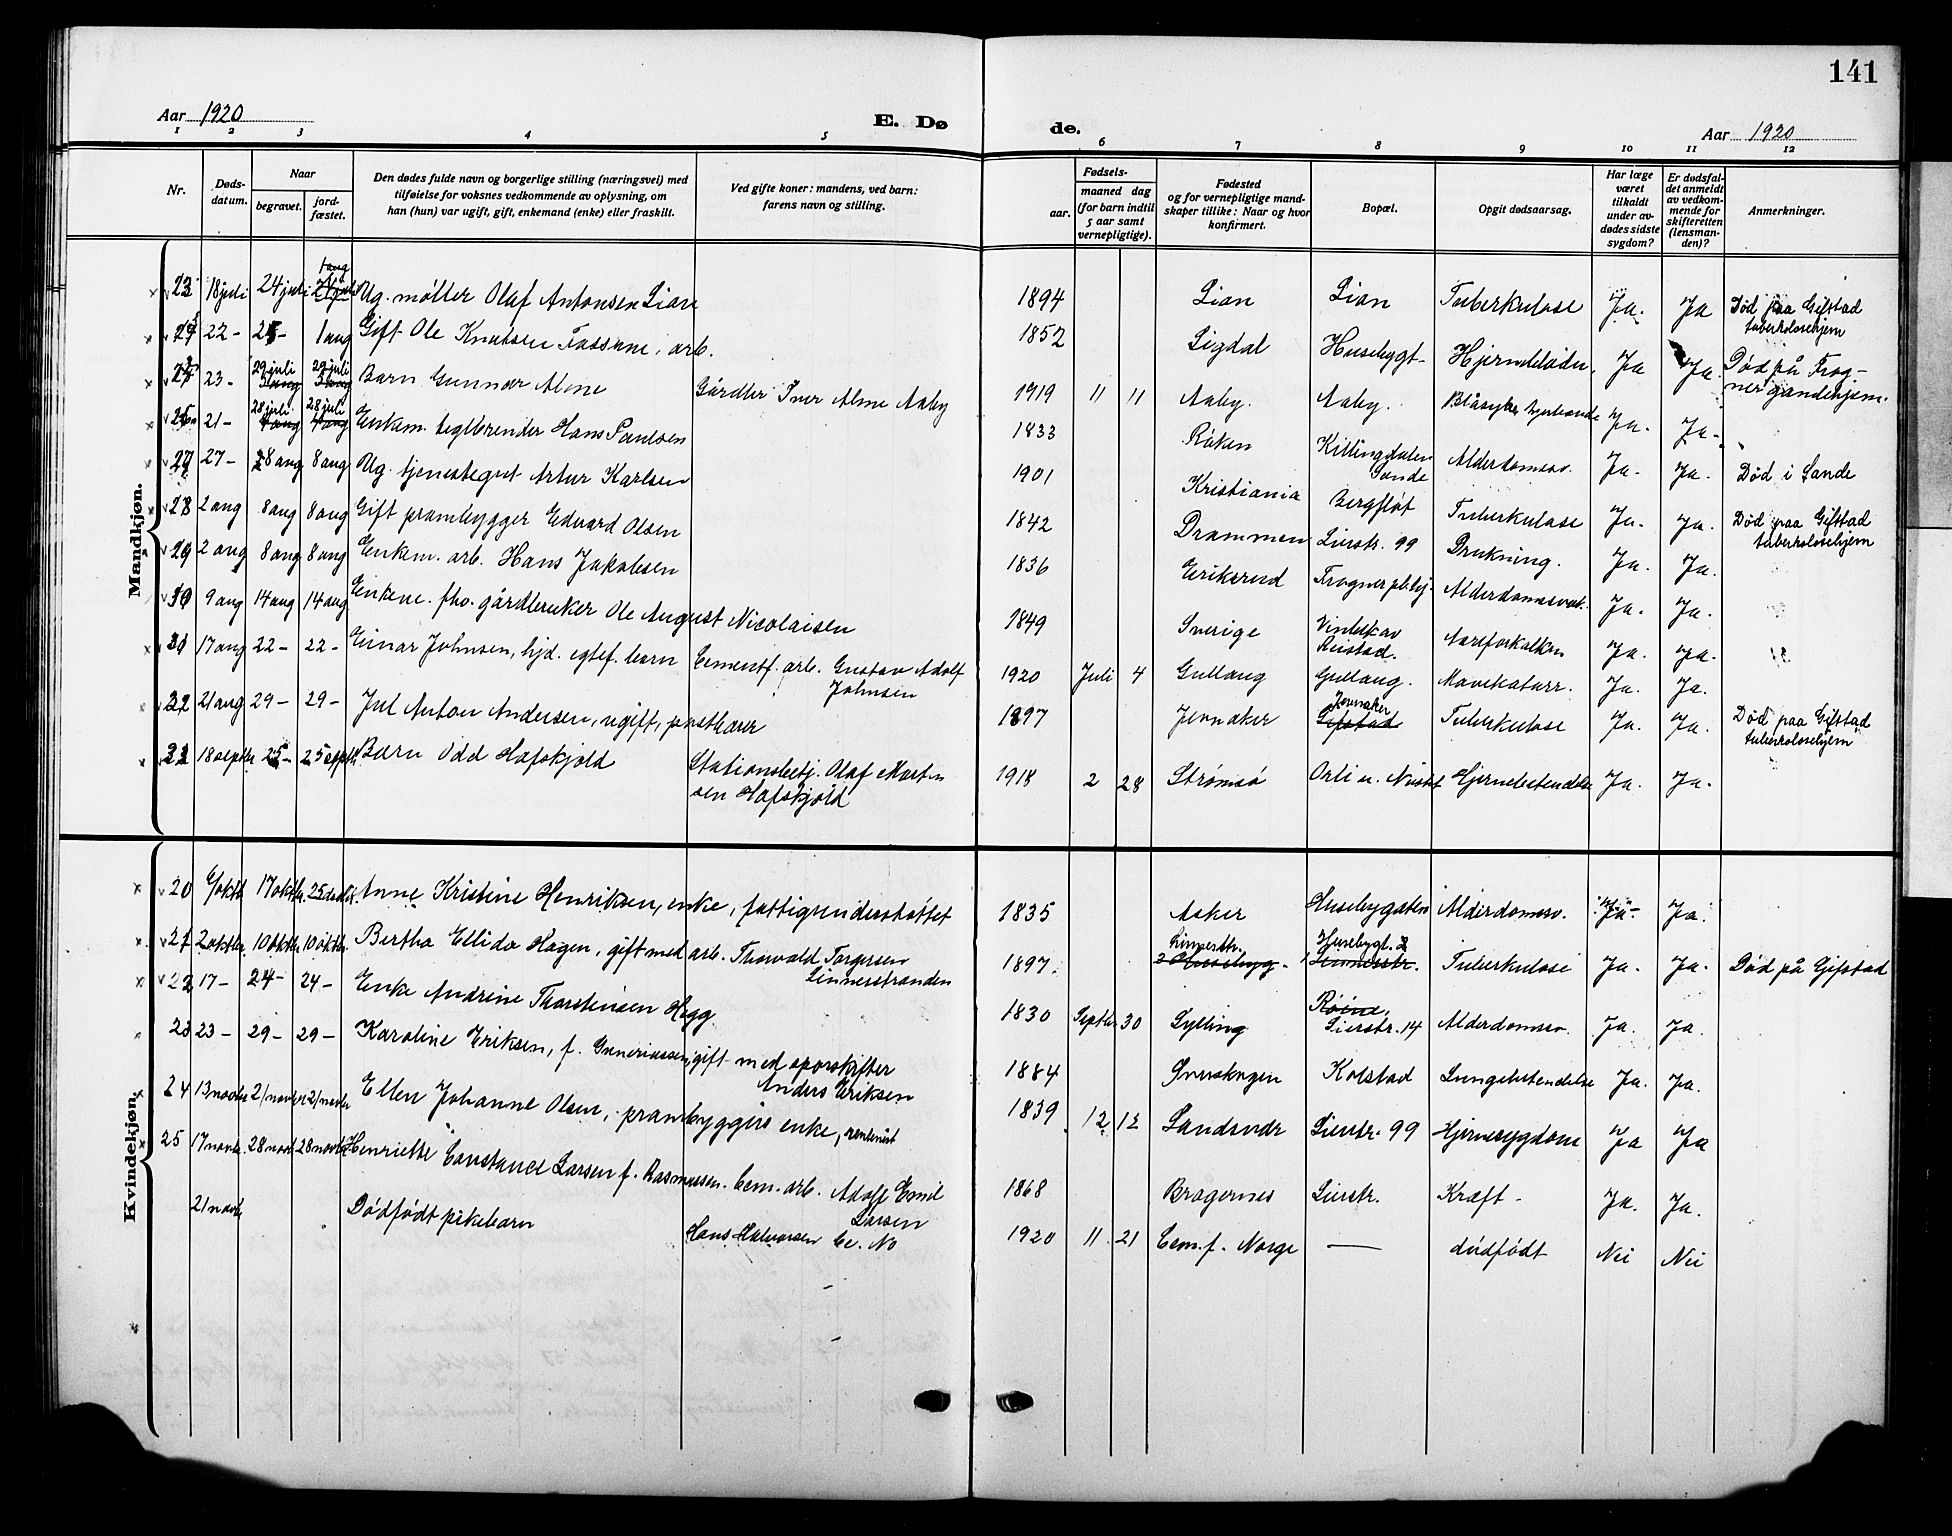 141
Aar 1920 E. Dø de. Aar 1920
1 2 3 4 5 6 7 8 9 10 11 12
Nr.
Døds-
datum.
Naar
begravet.
jord-
fæstet.
Den dødes fulde navn og borgerlige stilling (næringsvei) med
tilføielse for voksnes vedkommende av oplysning, om
han (hun) var ugift, gift, enkemand (enke) eller fraskilt.
Ved gifte koner: mandens, ved barn:
farens navn og stilling.
Fødsels-
aar.
maaned dag
(for barn indtil
5 aar samt
vernepligtige).
Fødested
og for vernepligtige mand-
skaper tillike: Naar og hvor
konfirmert.
Bopæl.
Opgit dødsaarsag.
Har læge
været
tilkaldt
under av-
dødes sidste
sygdom?
Er dødsfal-
det anmeldt
av vedkom-
mende for
skifteretten
(lensman-
den)?
Anmerkninger.
Mandkjøn.
23 18 juli 24 juli 1 aug Ug. møller Olaf Antonsen Lian 1894 Lian Lian Tuberkulose Ja. Ja Død paa Gifstad
tuberkolosehjem
22 - 1 aug Gift Ole Knutsen Fossum, arb. 1852 Sigdal Husebygt. Ja Ja Død på Frog-
ner gamlehjem.
23 - 29 juli 29 juli Barn Gunnar Alme Gårdbr Iver Alme Aaby 1919 11 11 Aaby. Aaby. Ja. Ja.
21 - 28 juli 28 juli Enkem. teglbrender Hans Paulsen 1833 Røken Killingdalen
Sande Alderdomssv. Ja. Ja. Død i Sande
27 27 - 8 aug 8 aug Ug. tjenestegut Artur Karlsen 1901 Kristiania Bergfløt Tuberkulose Ja. Ja. Død paa Gifstad
tuberkolosehjem
28 2 aug 8 aug 8 aug Gift prambygger Edvard Olsen 1842 Drammen Lierstr. 99 Drukning. Ja. Ja.
29 2 aug 8 aug 8 aug Enkem. arb. Hans Jakobsen 1836 Eriksrud Frogner plehj. Ja. Ja.
30 9 aug 14 aug 14 aug Enkem. fhv. gårdbruker Ole August Nicolaisen 1849 Sverige Aareforkalkn Ja. Ja.
31 17 aug 22 - 22 - Einar Johnsen, hjd. egtef. barn Cementf. arb. Gustav Adolf
Johnsen 1920 Juli 4 Gullaug Gullaug. Mavekatarr. Ja. Ja.
32 21 aug 29 - 29 - Jul Anton Andersen, ugift, postbærer 1897 Jevnaker Jevnaker
Gifstad Tuberkulose Ja. Ja. Død paa Gifstad
tuberkolosehjem
33 18 septbr 25 - 25 septbr. Barn Odd Hafskjold Stationsbetj. Olaf Mart
sen Hafskjold 1918 2 28 Strømsø Hjernebetendelse Ja. Ja.
Kvindekjøn.
20 6/oktb 17 oktbr. Anne Kristine Henriksen, enke, fattigunderstøttet 1835 Asker Husebygaten Alderdomssv. Ja. Ja.
21 2 oktbr. 10 oktbr. 10 oktbr. Bertha Ellida Hagen, gift med arb. Thorvald Torgersen
Linnerstranden 1897. Linnerstr.
2 Husebyg. Husebygt. 2
Linnerstr. Tuberkulose Ja. Ja. Død på Gifstad
22 17 - 24 - 24 - Enke Andrine Thorstensen Hegg 1830 Septbr. 30 Sylling Lierstr. 14 Alderdomssv. Ja. Ja.
23 23 - 29 - 29 - Karoline Eriksen, f. gift med sporskifter
Anders Eriksen 1884 Kolstad Lungebetendelse Ja. Ja.
24 13 novbr 21 novbr 21 novbr Ellen Johanne Olsen, prambyggers enke, rentenist 1839 12 12 Sandsvær Lierstr. 99 Hjernesygdom Ja Ja
25 17 novbr. 28 novb 28 novbr Henriette Constance Larsen f. Rasmussen. Cem. arb. Adolf Emil
Larsen 1868 Bragernes Lierstr. Kræft - Ja. Ja.
21 novb Dødfødt pikebarn Hans Halvorsen Ce. No 1920 11 21 Cem. f. Norge — dødfødt Nei Nei